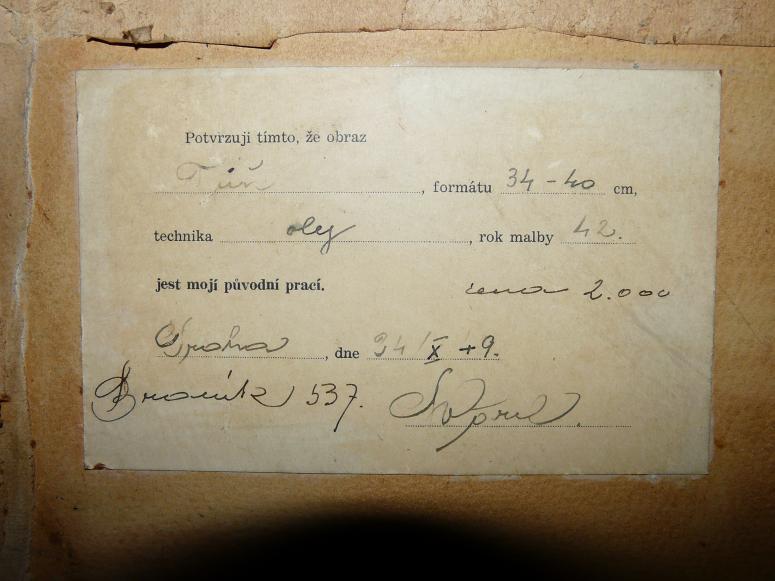 Potvrzuji tímto, že obraz
Tůň, formátu 34-40 cm,
technika olej, rok malby 42.
jest mojí původní prací. cena 2.000
Praha, dne 24/X 49.
537.